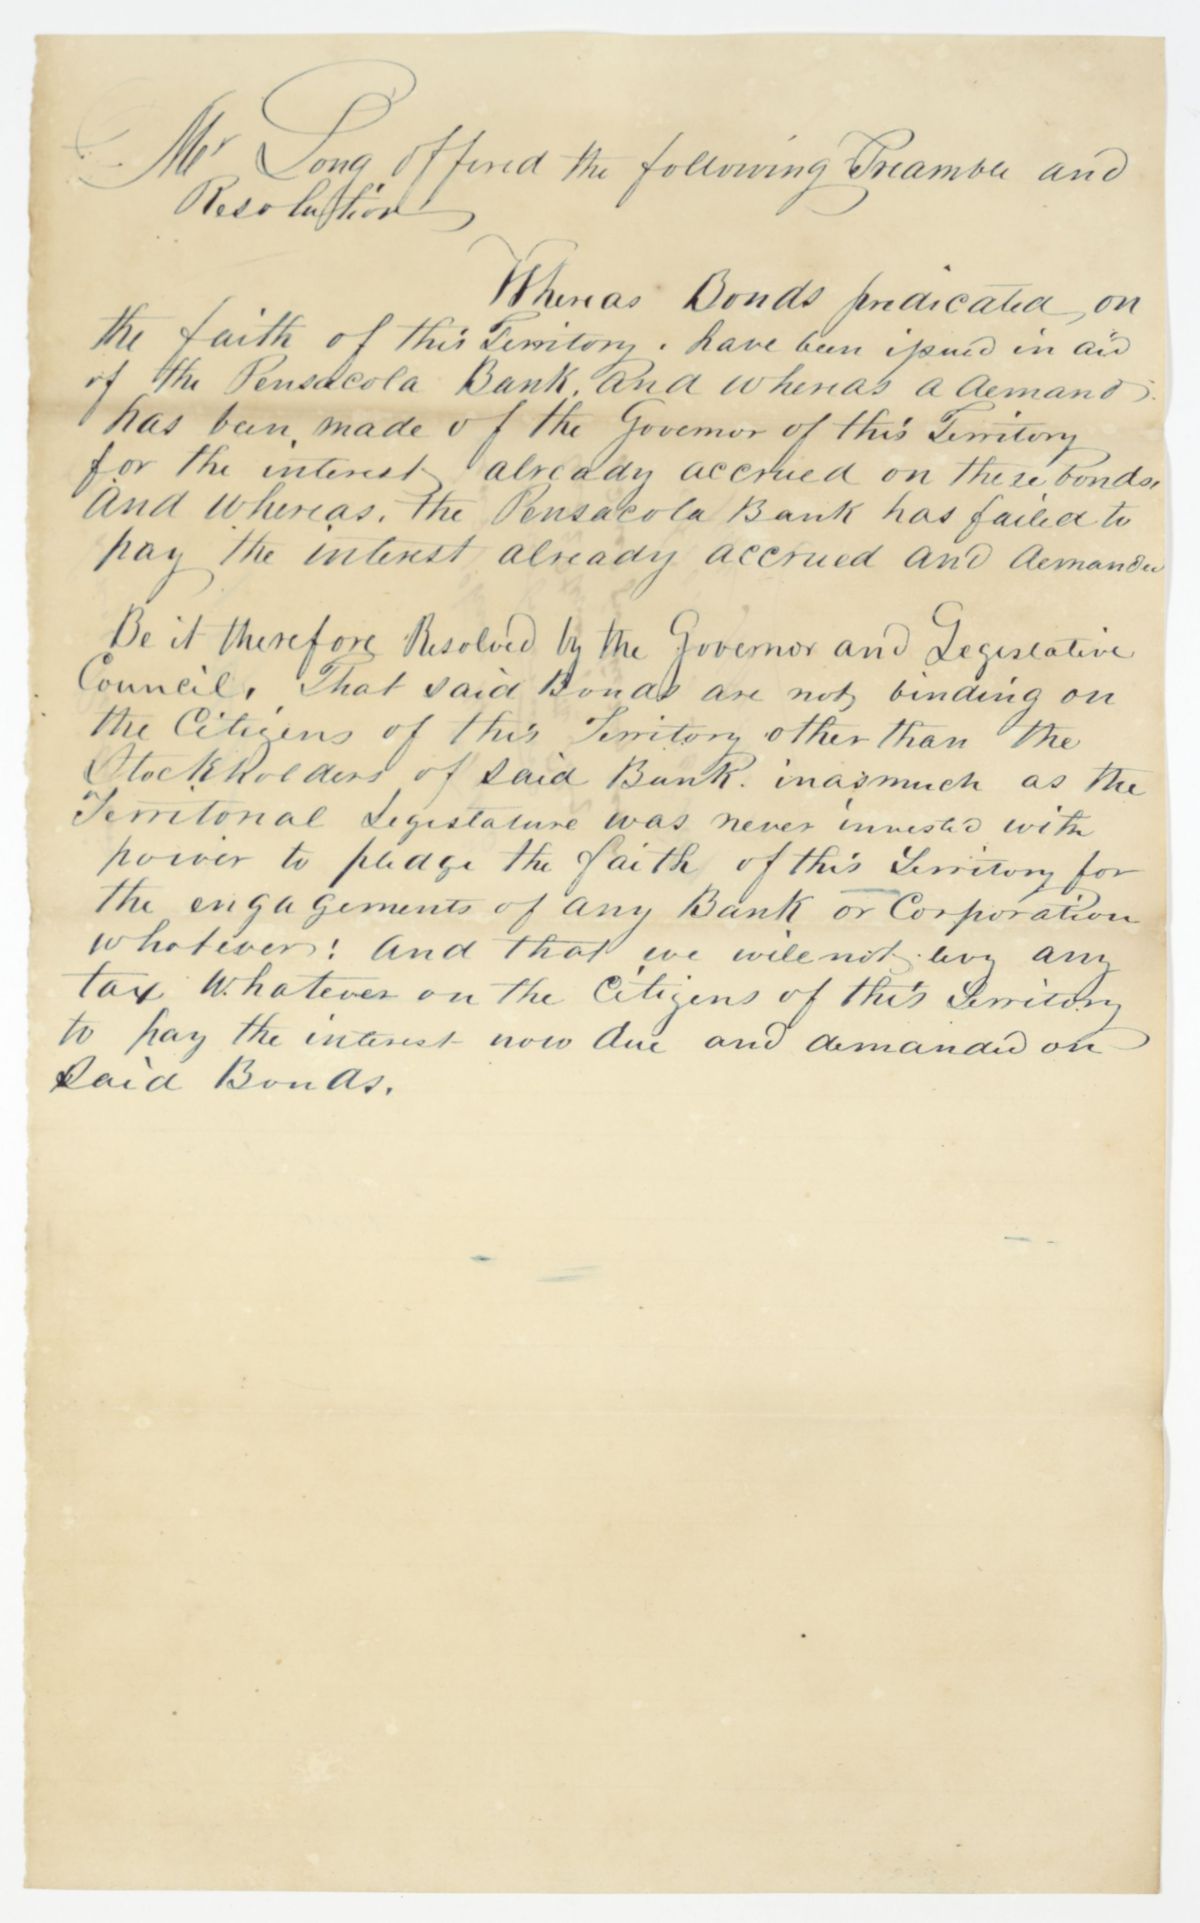 Mr Long offered the following Preamble and
Resolution
Whereas Bonds predicated, on
the faith of this Territory. have been issued in aid
of the Pensacola Bank. And whereas a demand
has been, made of the Governor of this Territory
for the interest already accrued on these bonds,
And whereas, the Pensacola Bank has failed to
pay the interest already accrued and demanded
Be it therefore Resolved by the Governor and Legislative
Council, That said Bonds are not binding on
the Citizens of this Territory other than the
Stockholders of said Bank. inasmuch as the
Territorial Legislature was never invested with
power to pledge the faith of this Territory for
the engagements of any Bank or Corporation
whatever: And that we will not levy any
tax Whatever on the Citizens of this Territory
to pay the interest now due and demanded on
said Bonds.